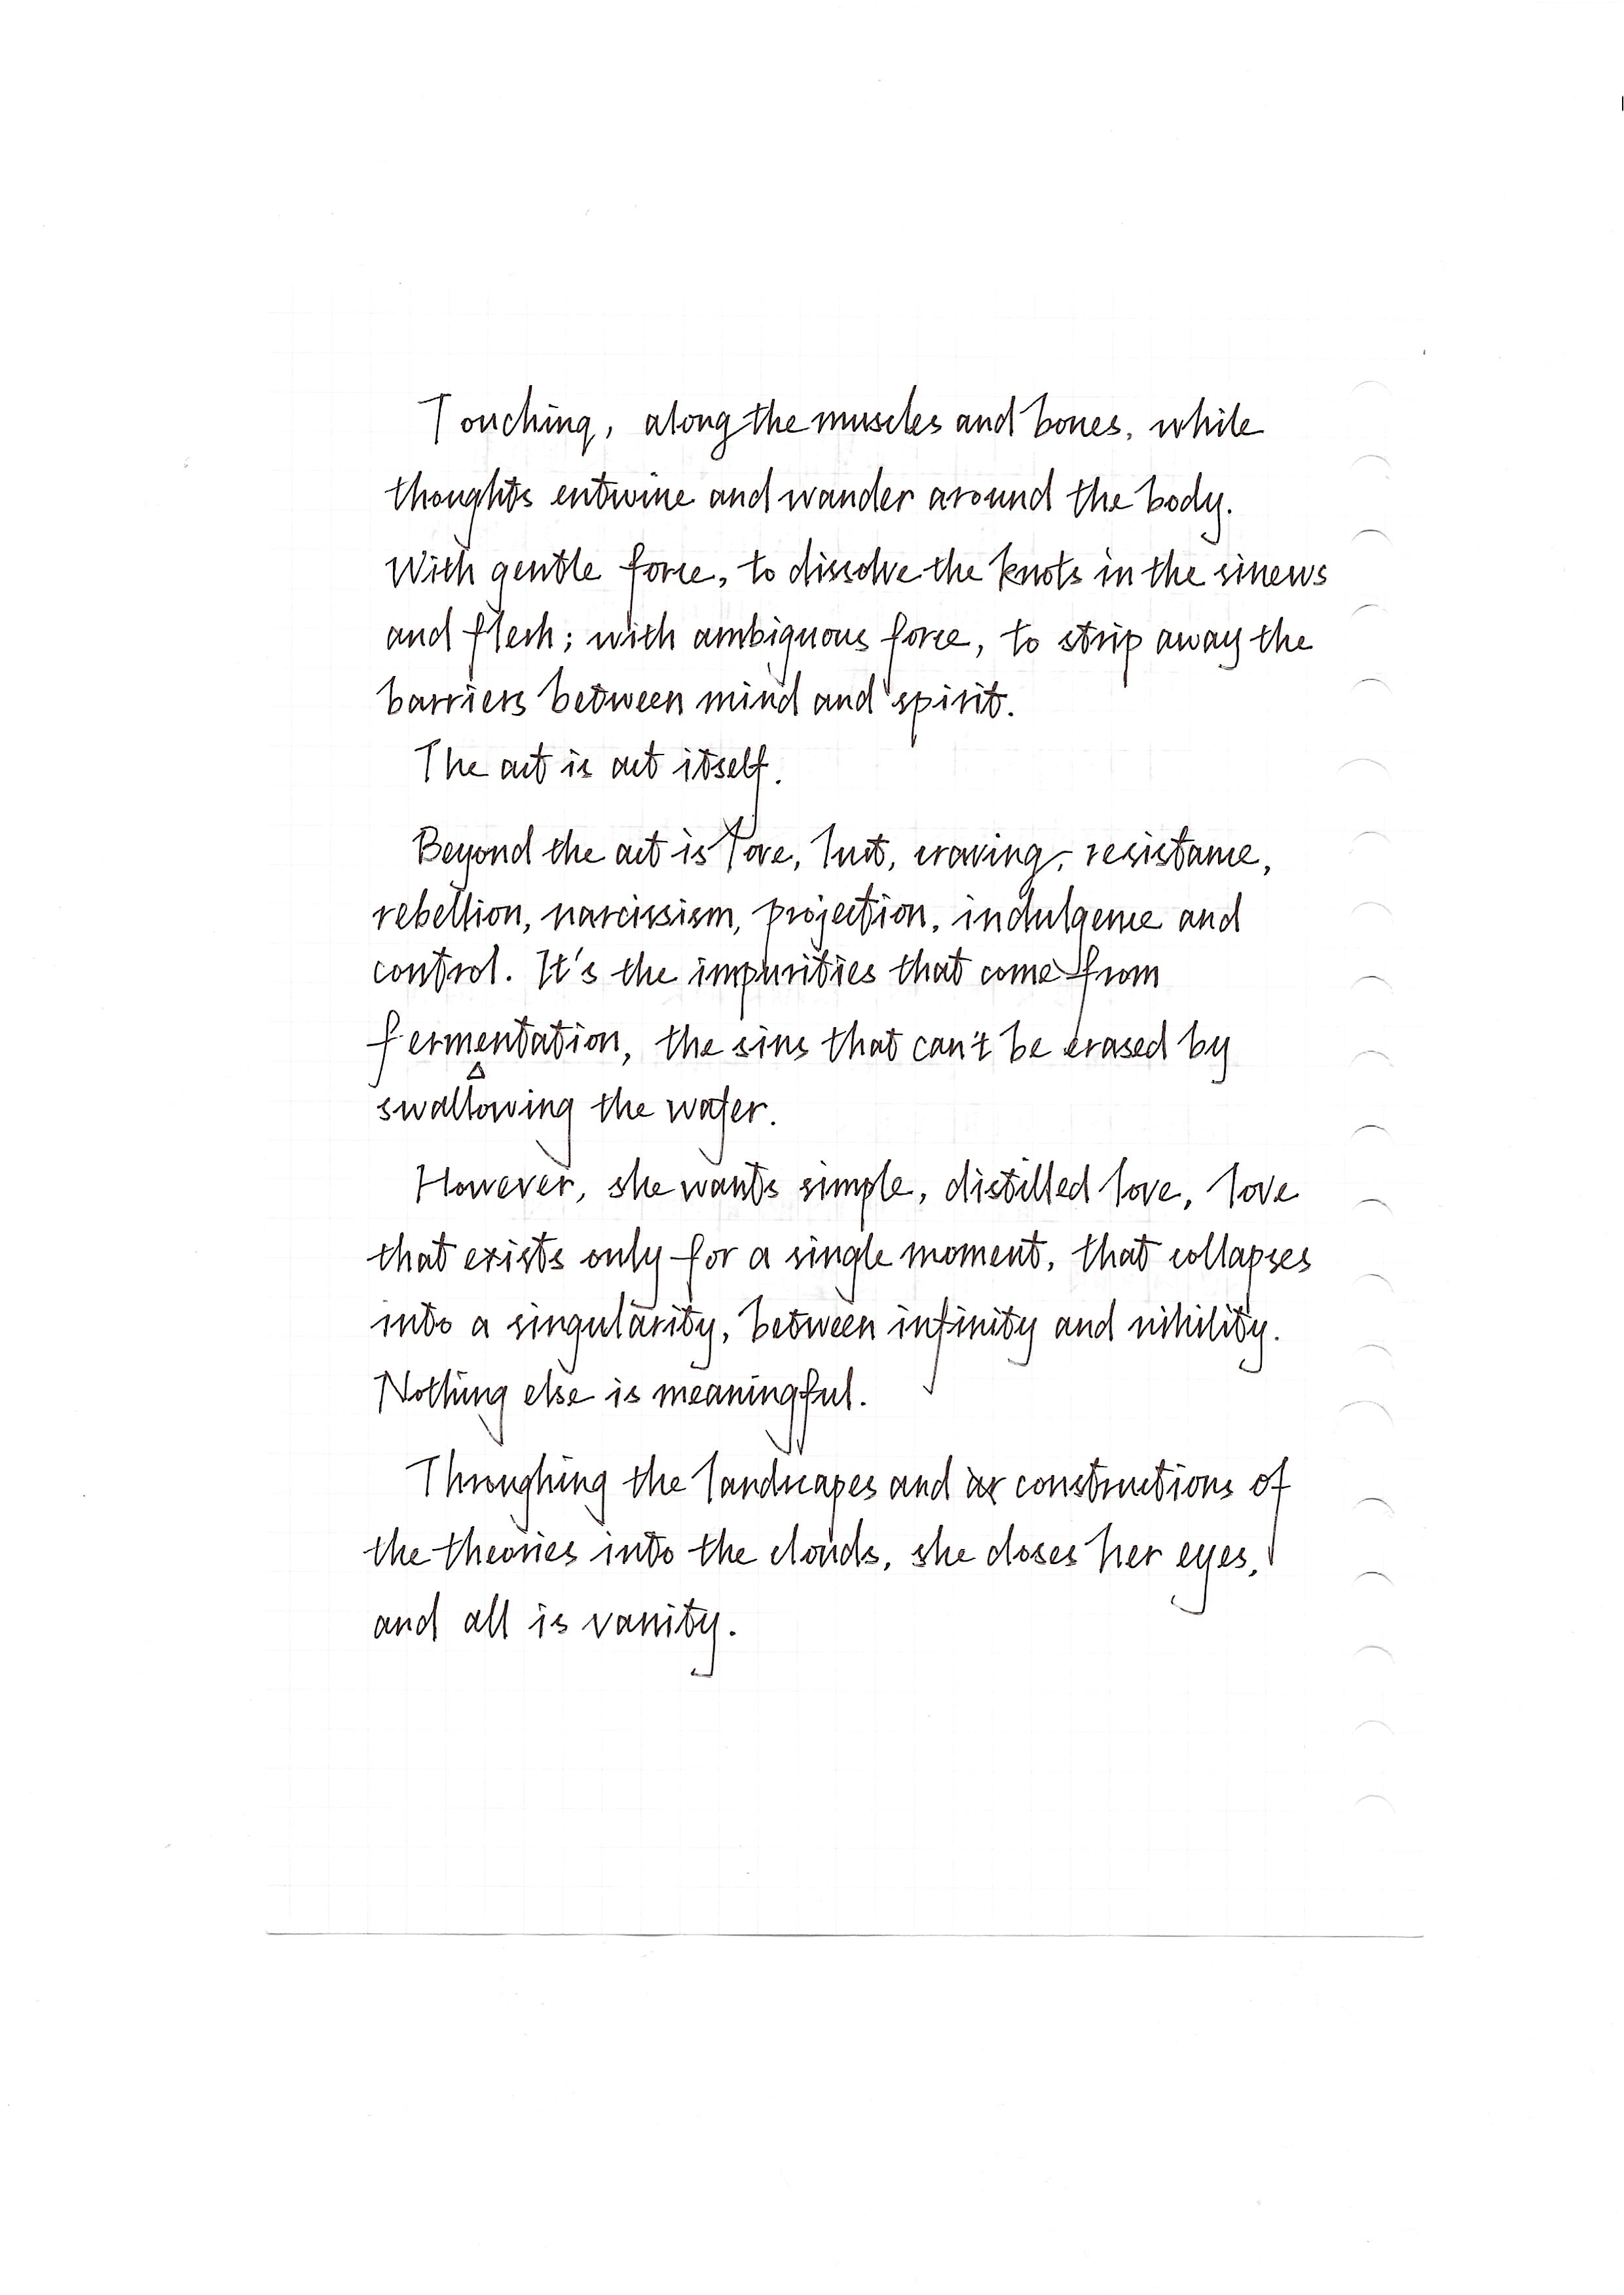 Touching, along the muscles and bones, while
thoughts entwine and wander around the body.
With gentle force, to dissolve the knots in the sinews
and flesh; with ambiguous force, to strip away the
barriers between mind and spirit.
The act is act itself.
Beyond the act is love, lust, craving, resistance,
rebellion, narcissism, projection, indulgence and
control. It's the impurities that come from
fermentation, the sins that can't be erased by
swallowing the wafer.
However, she wants simple, distilled love, love
that exists only for a single moment, that collapses
into a singularity, between infinity and nihility.
Nothing else is meaningful.
Throughing the landscapes and constructions of
the theories into the clouds, she closes her eyes,
and all is vanity.